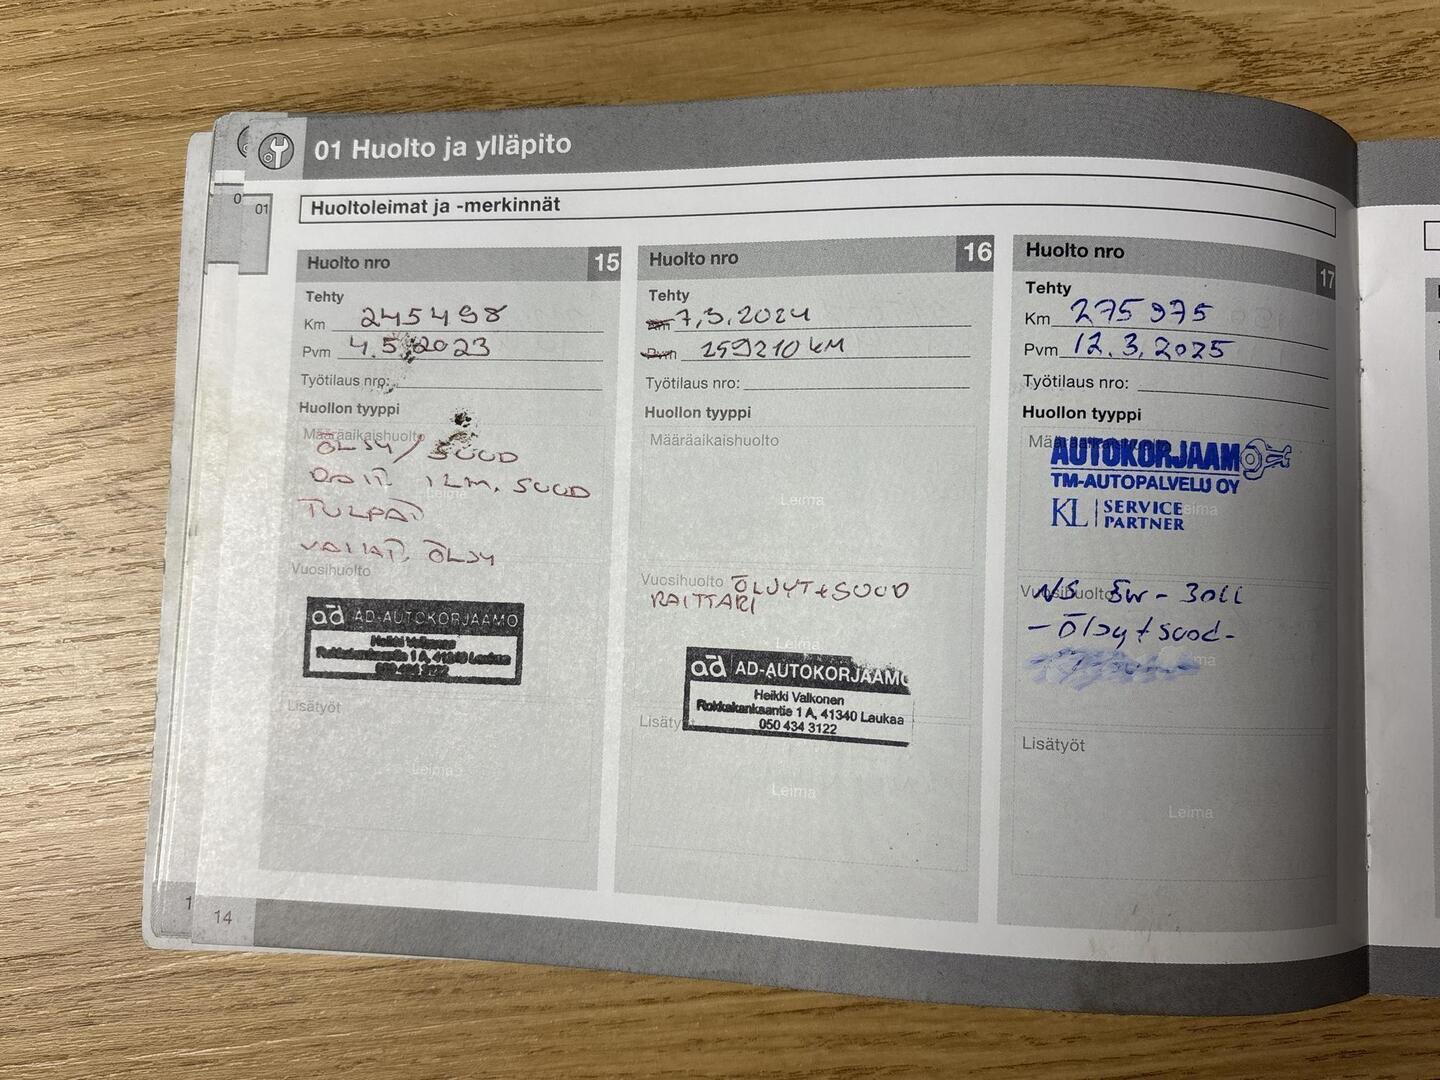 01 Huolto ja ylläpito
0
01
Huoltoleimat ja -merkinnät
Huolto nro 15
Tehty
Km 245498
Pvm 4.5.2023
Työtilaus nro:
Huollon tyyppi
Määräaikaishuolto
ÖLJY/SUOD
RAIT. ILM. SUOD
Leima
TULPAT
ÖLJY
Vuosihuolto
ad AD-AUTOKORJAAMO
Heikki Valkonen
Rokkakankaantie 1 A, 41340 Laukaa
050 434 3122
Lisätyöt
Leima
Huolto nro 16
Tehty
7,3,2024
Pvm 259210 KM
Työtilaus nro:
Huollon tyyppi
Määräaikaishuolto
Leima
Vuosihuolto ÖLJYT+SUOD
RAITTARI
Leima
ad AD-AUTOKORJAAMO
Heikki Valkonen
Rokkakankaantie 1 A, 41340 Laukaa
050 434 3122
Lisätyöt
Leima
Huolto nro 17
Tehty
Km 275975
Pvm 12.3.2025
Työtilaus nro:
Huollon tyyppi
AUTOKORJAAMO
TM-AUTOPALVELU OY
KL SERVICE PARTNER
Leima
Vuosihuolto
NS 5w-30ll
-Öljy+suod-
Lisätyöt
Leima
1
14